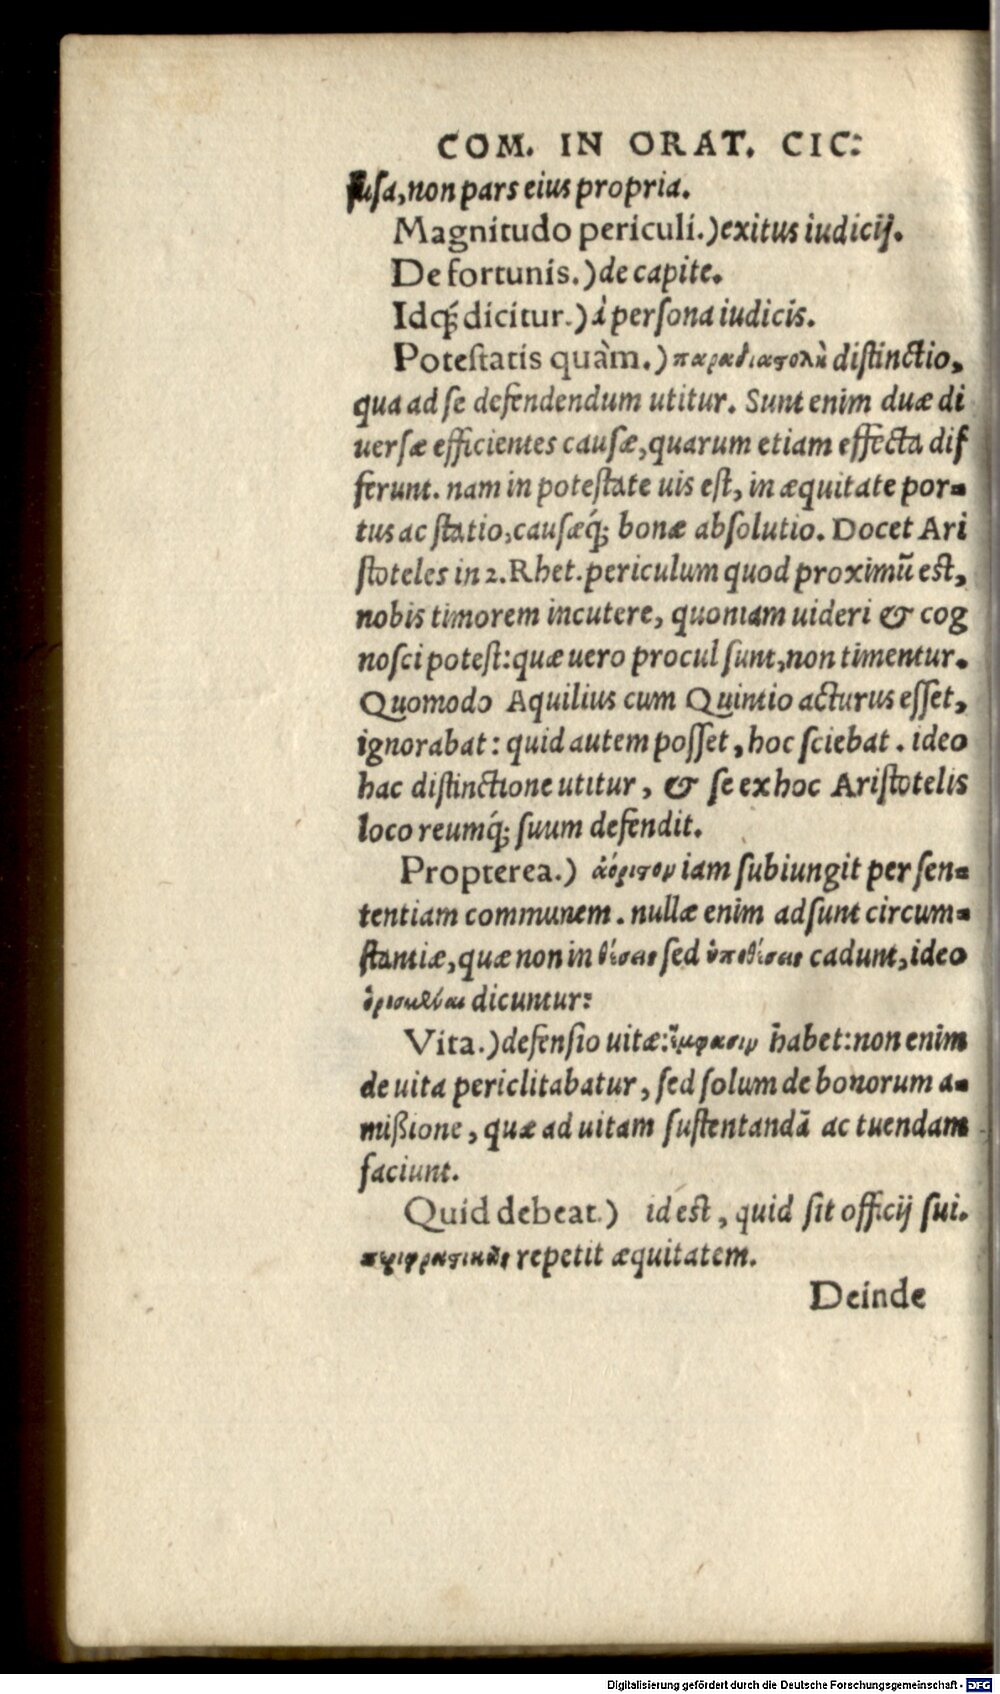 COM. IN ORAT. CIC:
usa, non pars eius propria.
Magnitudo periculi.) exitus iudicij.
De fortunis.) de capite.
Idq́; dicitur.) à persona iudicis.
Potestatis quàm.) παραδιαστολὴ distinctio,
qua ad se defendendum utitur. Sunt enim duæ di
uersæ efficientes causæ, quarum etiam effecta dif
ferunt. nam in potestate uis est, in æquitate por-
tus ac statio, causæq́; bonæ absolutio. Docet Ari
stoteles in 2. Rhet. periculum quod proximũ est,
nobis timorem incutere, quoniam uideri & cog
nosci potest: quæ uero procul sunt, non timentur.
Quomodo Aquilius cum Quintio acturus esset,
ignorabat: quid autem posset, hoc sciebat. ideo
hac distinctione utitur, & se ex hoc Aristotelis
loco reumq́; suum defendit.
Propterea.) ἀόριστον iam subiungit per sen-
tentiam communem. nullæ enim adsunt circum-
stantiæ, quæ non in θέσεις sed ὑποθέσεις cadunt, ideo
dicuntur:
Vita.) defensio uitæ: ἔμφασιν habet: non enim
de uita periclitabatur, sed solum de bonorum a-
mißione, quæ ad uitam sustentandã ac tuendam
faciunt.
Quid debeat.) id est, quid sit officij sui.
περιφραστικῶς repetit æquitatem.
Deinde
Digitalisierung gefördert durch die Deutsche Forschungsgemeinschaft - DFG